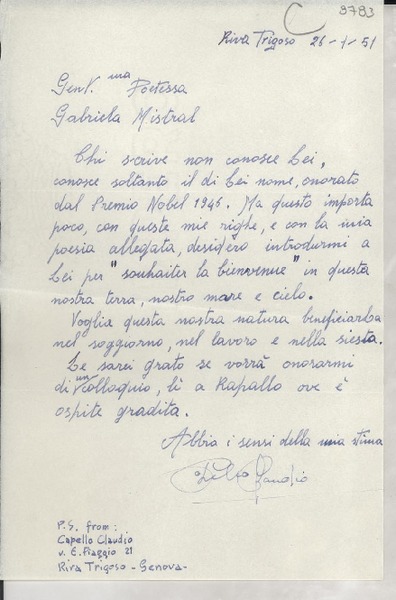 C 3783
Riva Trigoso 26-1-51
Gent.ma Poetessa
Gabriela Mistral
Chi scrive non conosce Lei,
conosce soltanto il di Lei nome, onorato
dal Premio Nobel 1945. Ma questo importa
poco, con queste mie righe, e con la mia
poesia allegata, desidero introdurmi a
Lei per "souhaiter la bienvenue" in questa
nostra terra, nostro mare e cielo.
Voglia questa nostra natura beneficiarLa
nel soggiorno, nel lavoro e nella siesta.
Le sarei grato se vorrà onorarmi
di un colloquio, lì a Rapallo ove è
ospite gradita.
Abbia i sensi della mia stima
Claudio
P.S. from:
Capello Claudio
v. E. Piaggio 21
Riva Trigoso - Genova -